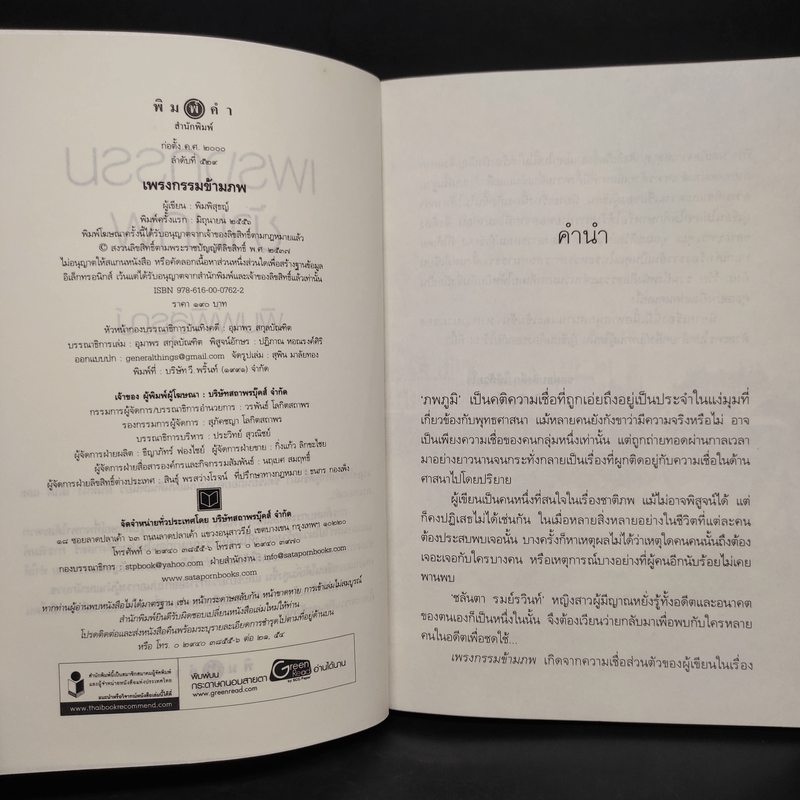 พิมพ์คำ
สำนักพิมพ์
ก่อตั้ง ค.ศ. ๒๐๐๐
ลำดับที่ ๕๒๙
เพรงกรรมข้ามภพ
ผู้เขียน : พิมพิสุธญ์
พิมพ์ครั้งแรก : มิถุนายน ๒๕๕๖
พิมพ์โฆษณาครั้งนี้ได้รับอนุญาตจากเจ้าของลิขสิทธิ์ตามกฎหมายแล้ว
© สงวนลิขสิทธิ์ตามพระราชบัญญัติลิขสิทธิ์ พ.ศ. ๒๕๓๗
ไม่อนุญาตให้สแกนหนังสือ หรือคัดลอกเนื้อหาส่วนหนึ่งส่วนใดเพื่อสร้างฐานข้อมูล
อิเล็กทรอนิกส์ เว้นแต่ได้รับอนุญาตจากสำนักพิมพ์และเจ้าของลิขสิทธิ์แล้วเท่านั้น
ISBN 978-616-00-0762-2
ราคา ๑๙๐ บาท
หัวหน้ากองบรรณาธิการบันเทิงคดี : อุมาพร สกุลบัณฑิต
บรรณาธิการเล่ม : อุมาพร สกุลบัณฑิต พิสูจน์อักษร : ปฏิภาณ หอณรงค์ศิริ
ออกแบบปก : generalthings@gmail.com จัดรูปเล่ม : สุพิน มาลัยทอง
พิมพ์ที่ : บริษัท วี. พริ้นท์ (๑๙๙๑) จำกัด
เจ้าของ ผู้พิมพ์ผู้โฆษณา : บริษัทสถาพรบุ๊คส์ จำกัด
กรรมการผู้จัดการ/บรรณาธิการอำนวยการ : วรพันธ์ โลกิตสถาพร
รองกรรมการผู้จัดการ : สุภัคชญา โลกิตสถาพร
บรรณาธิการบริหาร : ประวิทย์ สุวณิชย์
ผู้จัดการฝ่ายผลิต : ธีญาภัทร์ ฟองไชย์ ผู้จัดการฝ่ายขาย : กิ่งแก้ว ลิกขะไชย
ผู้จัดการฝ่ายสื่อสารองค์กรและกิจกรรมสัมพันธ์ : นฤเบศ สมฤทธิ์
ผู้จัดการฝ่ายลิขสิทธิ์ต่างประเทศ : สินธุ์ พรสว่างโรจน์ ที่ปรึกษาทางกฎหมาย : ธนกร กองเพ็ง
จัดจำหน่ายทั่วประเทศโดย บริษัทสถาพรบุ๊คส์ จำกัด
๑๘ ซอยลาดปลาเค้า ๖๓ ถนนลาดปลาเค้า แขวงอนุสาวรีย์ เขตบางเขน กรุงเทพฯ ๑๐๒๒๐
โทรศัพท์ ๐ ๒๙๔๐ ๓๘๕๕-๖ โทรสาร ๐ ๒๙๔๐ ๓๙๗๐
กองบรรณาธิการ : stpbook@yahoo.com ฝ่ายสำนักงาน : info@satapornbooks.com
www.satapornbooks.com
หากท่านผู้อ่านพบหนังสือไม่ได้มาตรฐาน เช่น หน้ากระดาษสลับกัน หน้าขาดหาย การเข้าเล่มไม่สมบูรณ์
สำนักพิมพ์ยินดีรับผิดชอบเปลี่ยนหนังสือเล่มใหม่ให้ท่าน
โปรดติดต่อและส่งหนังสือคืนพร้อมระบุรายละเอียดการชำรุดไปตามที่อยู่ด้านบน
หรือ โทร. ๐ ๒๙๔๐ ๓๘๕๕-๖ ต่อ ๒๑, ๕๔
สำนักพิมพ์นี้เป็นสมาชิกสมาคมผู้จัดพิมพ์
และผู้จำหน่ายหนังสือแห่งประเทศไทย
แนะนำ/ติ/วิจารณ์หนังสือเล่มนี้ได้ที่
www.thaibookrecommend.com
พิมพ์บน
กระดาษถนอมสายตา
Green Read
by SCG Paper
อ่านได้นาน
www.greenread.com
คำนำ
'ภพภูมิ' เป็นคติความเชื่อที่ถูกเอ่ยถึงอยู่เป็นประจำในแง่มุมที่
เกี่ยวข้องกับพุทธศาสนา แม้หลายคนยังกังขาว่ามีความจริงหรือไม่ อาจ
เป็นเพียงความเชื่อของคนกลุ่มหนึ่งเท่านั้น แต่ถูกถ่ายทอดผ่านกาลเวลา
มาอย่างยาวนานจนกระทั่งกลายเป็นเรื่องที่ผูกติดอยู่กับความเชื่อในด้าน
ศาสนาไปโดยปริยาย
ผู้เขียนเป็นคนหนึ่งที่สนใจในเรื่องชาติภพ แม้ไม่อาจพิสูจน์ได้ แต่
ก็คงปฏิเสธไม่ได้เช่นกัน ในเมื่อหลายสิ่งหลายอย่างในชีวิตที่แต่ละคน
ต้องประสบพบเจอนั้น บางครั้งก็หาเหตุผลไม่ได้ว่าเหตุใดคนคนนั้นถึงต้อง
เจอะเจอกับใครบางคน หรือเหตุการณ์บางอย่างที่ผู้คนอีกนับร้อยไม่เคย
พานพบ
'ชลันตา รมย์รวินท์' หญิงสาวผู้มีญาณหยั่งรู้ทั้งอดีตและอนาคต
ของตนเองก็เป็นหนึ่งในนั้น จึงต้องเวียนว่ายกลับมาเพื่อพบกับใครหลาย
คนในอดีตเพื่อชดใช้...
เพรงกรรมข้ามภพ เกิดจากความเชื่อส่วนตัวของผู้เขียนในเรื่อง